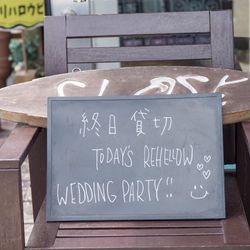 リハロウヒ
CLOAK
終日貸切
TODAY'S REHELLOW
WEDDING PARTY!!